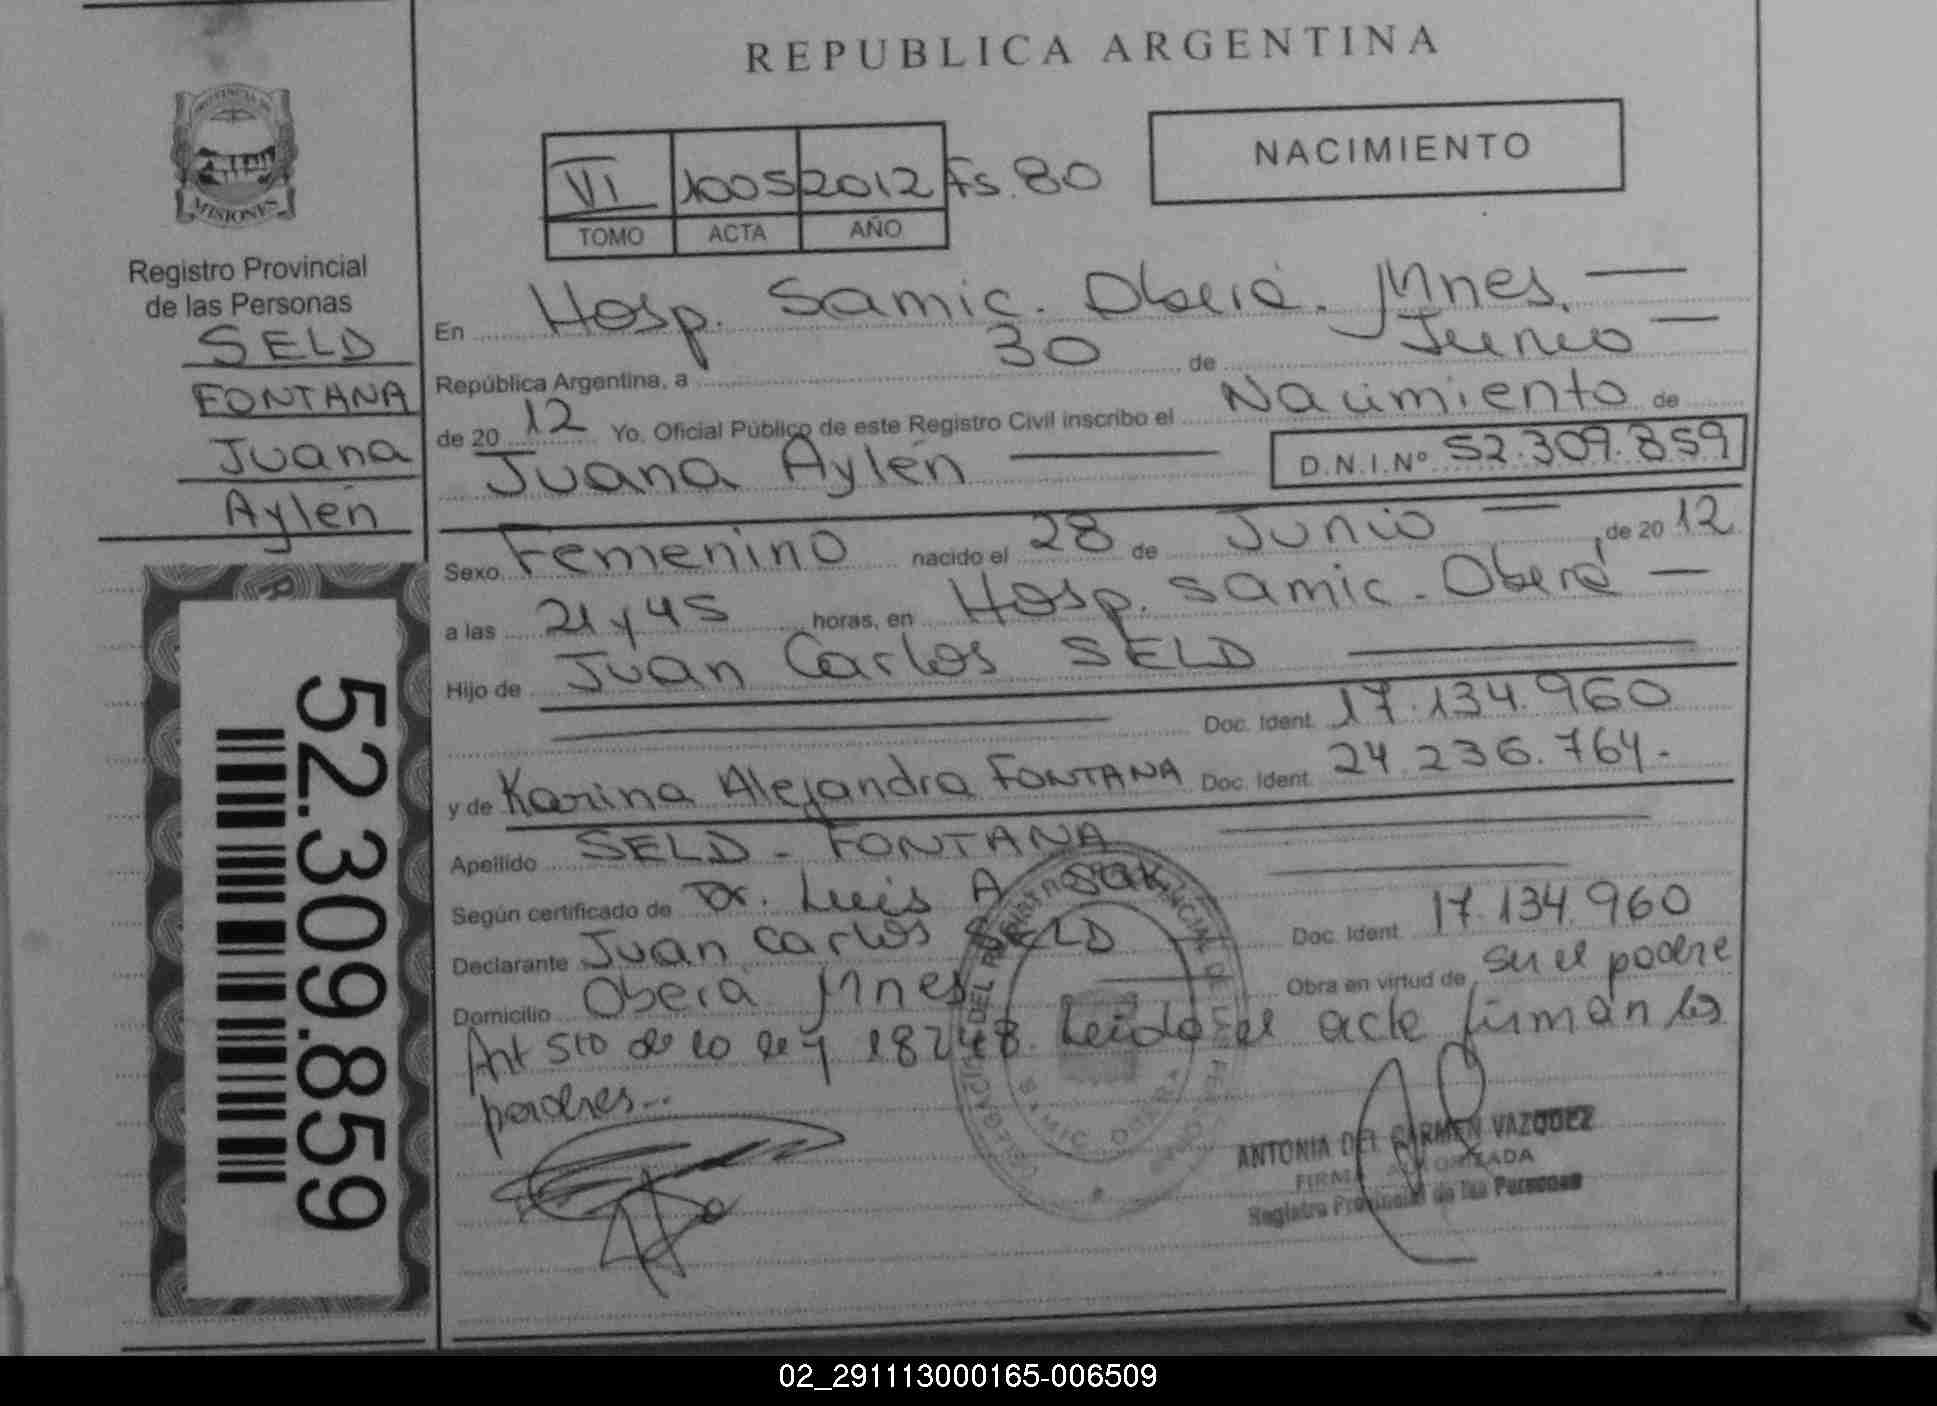 REPUBLICA ARGENTINA
NACIMIENTO
VI 1005 2012 Fs. 80
TOMO ACTA AÑO
PROVINCIA DE
MISIONES
Registro Provincial
de las Personas
SELD
FONTANA
Juana
Aylén
52.309.859
En Hosp. Samic. Oberá. Mnes.
República Argentina, a 30 de Junio
de 20 12 Yo, Oficial Público de este Registro Civil inscribo el Nacimiento de
Juana Aylén D.N.I.Nº 52.309.859
Sexo Femenino nacido el 28 de Junio de 20 12
a las 21 y 45 horas, en Hosp. Samic. Oberá
Hijo de Juan Carlos SELD
Doc. Ident. 17.134.960
y de Karina Alejandra FONTANA Doc. Ident. 24.236.764.
Apellido SELD - FONTANA
Según certificado de Dr. Luis A.
Declarante Juan Carlos SELD Doc. Ident. 17.134.960
Domicilio Oberá Mnes Obra en virtud de ser el padre
Art 5to de la ley 18248. Leida el acta firman los
padres..
ANTONIA DEL CARMEN VAZQUEZ
FIRMA AUTORIZADA
Registro Provincial de las Personas
02_291113000165-006509